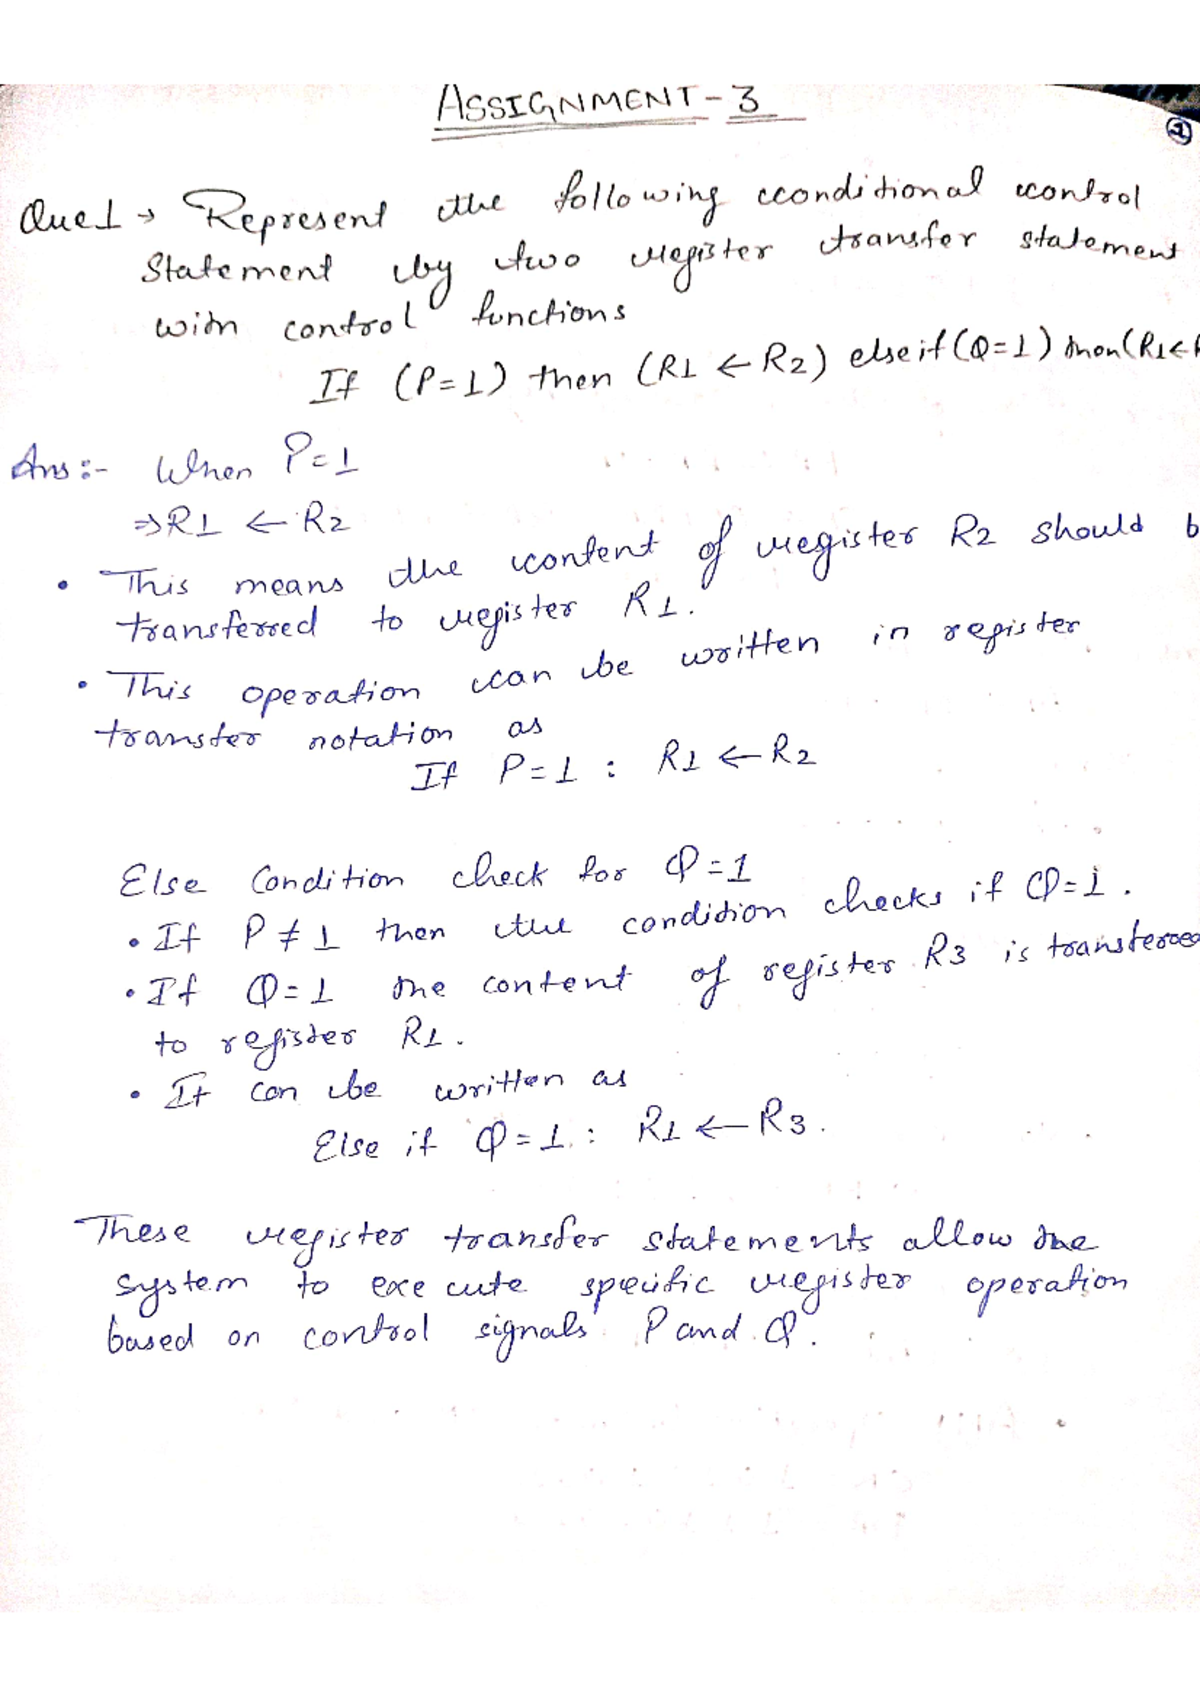 ASSIGNMENT-3
1
Que1 → Represent the following conditional control
Statement by two register transfer statement
with control functions
If (P=1) then (R1 ← R2) else if (Q=1) then (R1 ←
Ans:- When P=1
⇒ R1 ← R2
• This means the content of register R2 should b
transferred to register R1.
• This operation can be written in register
transfer notation as
If P=1 : R1 ← R2
Else Condition check for Q=1
• If P ≠ 1 then the condition checks if Q=1.
• If Q=1 the content of register R3 is transferred
to register R1.
• It can be written as
Else if Q=1 : R1 ← R3.
These register transfer statements allow the
system to execute specific register operation
based on control signals P and Q.